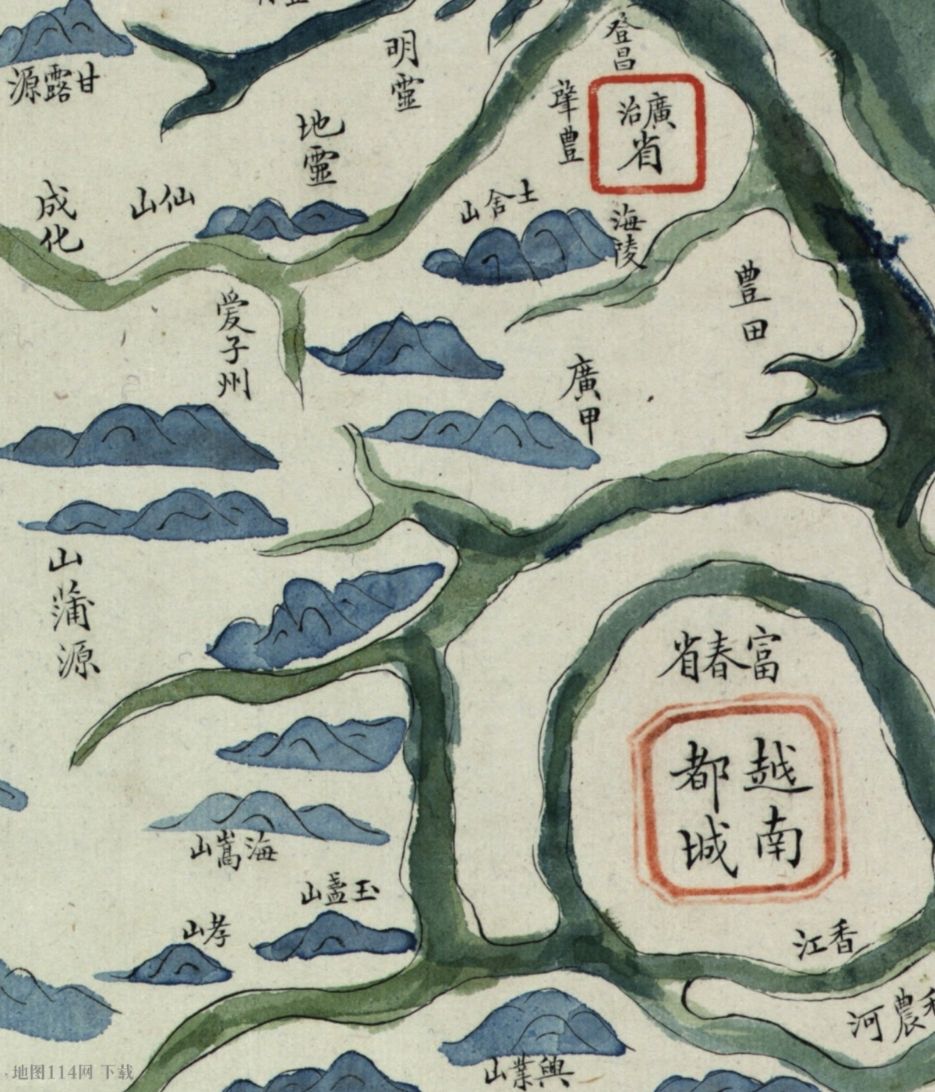 甘露源
明靈
登昌
肇豊
廣
治
省
地靈
成化
仙山
土舍山
海陵
愛子州
豊田
廣甲
山蒲源
富春省
越南
都城
海嵩山
玉盞山
孝山
香江
農河
興業山
地图114网 下载